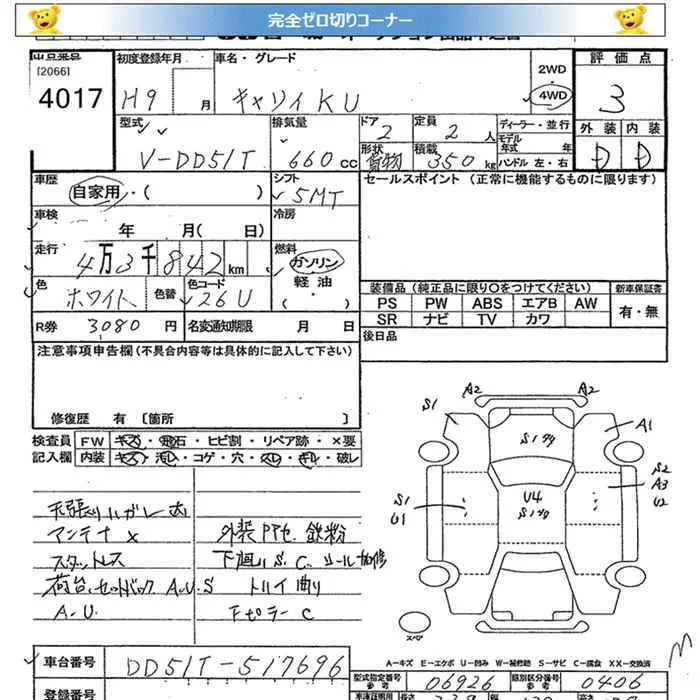 完全ゼロ切りコーナー
出品番号 初度登録年月 車名・グレード 2WD 評価点
[2066]
4017 H9 月 キャリイKU 4WD 3
型式 排気量 ドア 定員 ディーラー・並行 外装 内装
2 2人 モデル年式 年
V-DD51T 660cc 形状 積載 D D
貨物 350kg ハンドル 左・右
車歴 シフト セールスポイント (正常に機能するものに限ります)
自家用・( ) 5MT
車検 冷房
年 月( 日)
走行 燃料
4万3千842km ガソリン・
色 色コード 軽油 装備品(純正品に限り○をつけてください) 新車保証書
ホワイト 色替 26U ・( ) PS PW ABS エアB AW 有・無
R券 3080円 名変通知期限 月 日 SR ナビ TV カワ
注意事項申告欄(不具合内容等は具体的に記入して下さい) 後日品
修復歴 有 [箇所 ]
検査員 FW キズ・飛石・ヒビ割・リペア跡・×要
記入欄 内装 キズ・汚レ・コゲ・穴・スレ・キレ・破レ
A2 A2
S1 A1
S1サク
S2
A3
U2
S1
U1
U4
S1サク
天張りハガレ
アンテナ× 外装 鉄粉
スタットレス 下廻りS.C.
荷台、セットバックA.U.S トリイ曲り
A.U Fピラー C
スペア
A-キズ E-エクボ U-凹み W-補修跡 S-サビ C-腐食 XX-交換済
車台番号 DD51T-517696 型式指定番号 参考 06926 類別区分番号 参考 0406
登録番号 車庫証明用 長さ